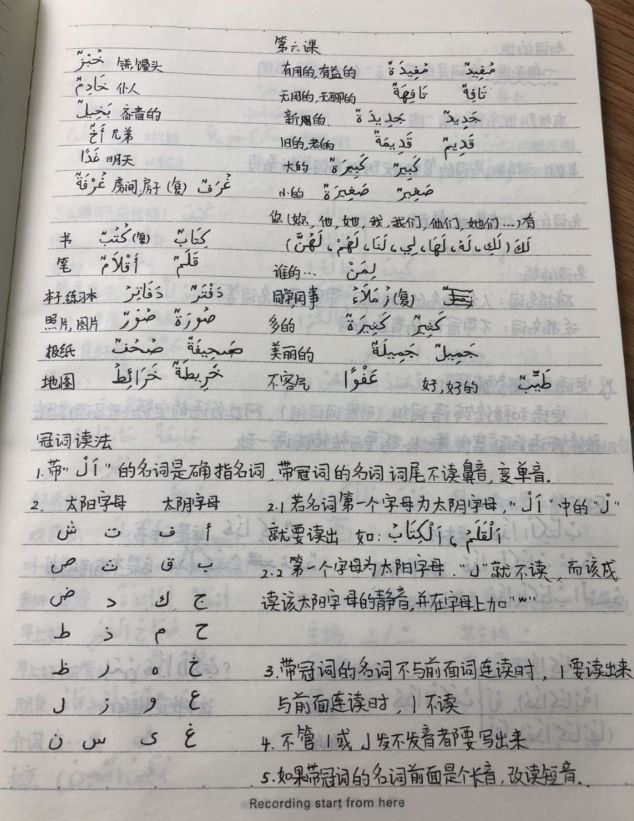 第六课
خُبْزٌ 饼,馒头 有用的,有益的 مُفِيدَةٌ مُفِيدٌ
خَادِمٌ 仆人 无用的,无聊的 تَافِهَةٌ تَافِهٌ
بَخِيلٌ 吝啬的 新的 جَدِيدَةٌ جَدِيدٌ
أَخٌ 兄弟 旧的,老的 قَدِيمَةٌ قَدِيمٌ
غَدًا 明天 大的 كَبِيرَةٌ كَبِيرٌ
غُرْفَةٌ 房间,房子(复) غُرَفٌ 小的 صَغِيرَةٌ صَغِيرٌ
你(妳,他,她,我,我们,他们,她们…)有
书 كُتُبٌ(复) كِتَابٌ لَكَ(لَكِ، لَهُ، لَهَا، لِي، لَنَا، لَهُمْ، لَهُنَّ)
笔 أَقْلَامٌ قَلَمٌ 谁的… لِمَنْ
本子,练习本 دَفَاتِرُ دَفْتَرٌ 同学,同事 زُمَلَاءُ(复)
照片,图片 صُوَرٌ صُورَةٌ 多的 كَثِيرَةٌ كَثِيرٌ
报纸 صُحُفٌ صَحِيفَةٌ 美丽的 جَمِيلَةٌ جَمِيلٌ
地图 خَرَائِطُ خَرِيطَةٌ 不客气 عَفْوًا 好,好的 طَيِّبٌ
冠词读法
1.带"اَلْ"的名词是确指名词,带冠词的名词词尾不读鼻音,变单音.
2. 太阳字母 太阴字母 2.1 若名词第一个字母为太阴字母,"اَلْ"中的"لْ"
ش ت ف أ 就要读出 如: اَلْقَلَمُ ، اَلْكِتَابُ
ص ث ق ب 2.2 第一个字母为太阳字母,"ل"就不读,而该成
ض د ك ج 读该太阳字母的静音,并在字母上加"ّ"
ط ذ م ح
ظ ر ه خ 3.带冠词的名词不与前面词连读时,ا要读出来
ل ز و ع 与前面连读时,ا不读
ن س ى غ 4. 不管ا或ل发不发音者都要写出来
5.如果带冠词的名词前面是个长音,改读短音.
Recording start from here